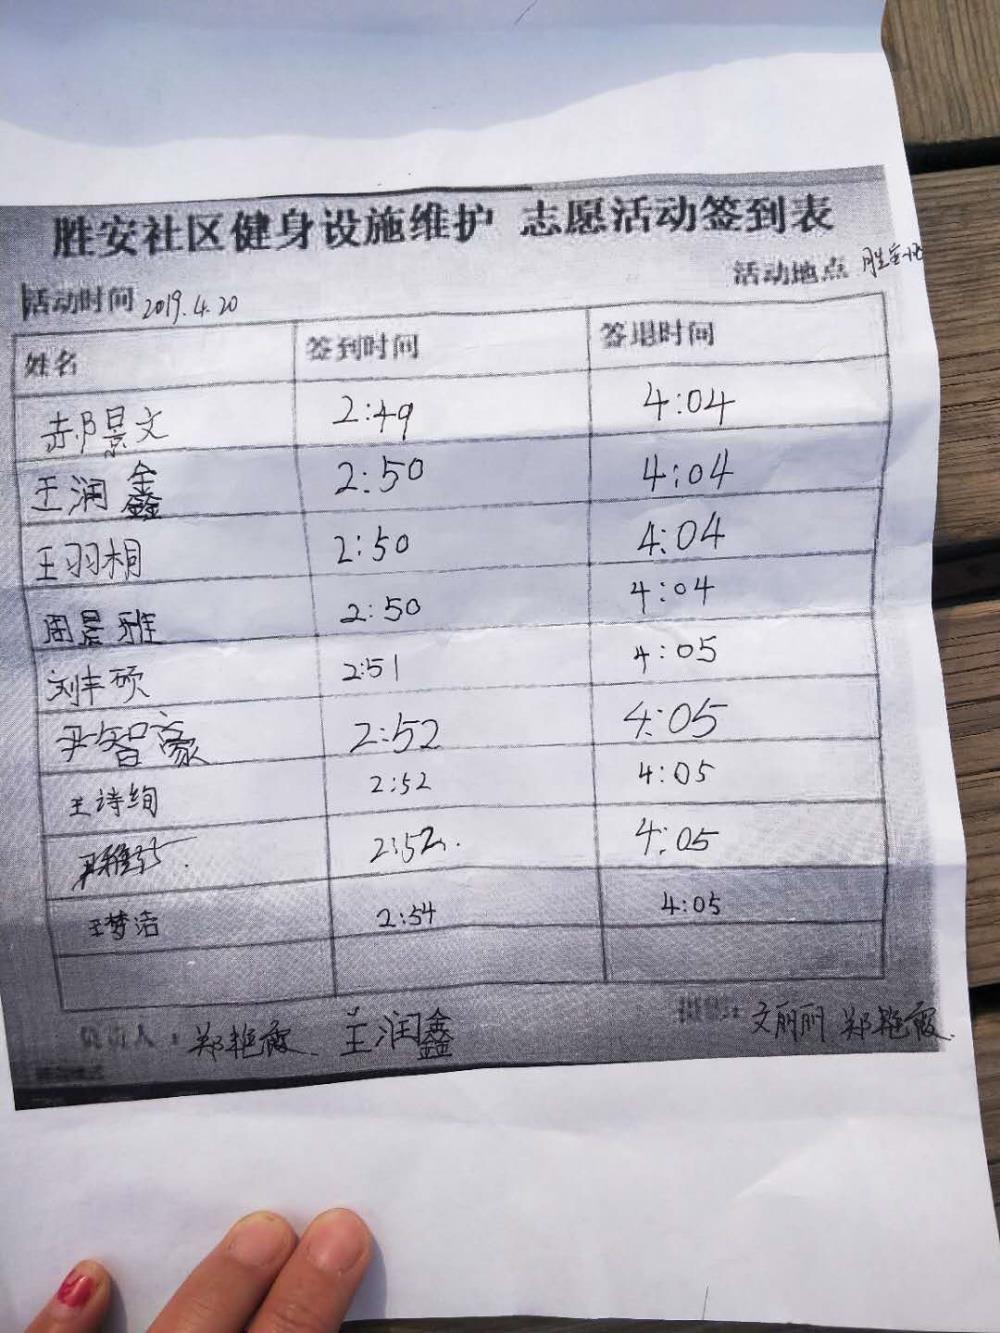 胜安社区健身设施维护 志愿活动签到表
活动时间 2019.4.20 活动地点 胜安社
姓名 签到时间 签退时间
郝景文 2:49 4:04
王润鑫 2:50 4:04
王羽桐 2:50 4:04
周景雅 2:50 4:04
刘丰硕 2:51 4:05
尹智豪 2:52 4:05
王诗绚 2:52 4:05
2:52 4:05
王梦洁 2:54 4:05
负责人：郑艳霞 王润鑫 文丽丽 郑艳霞